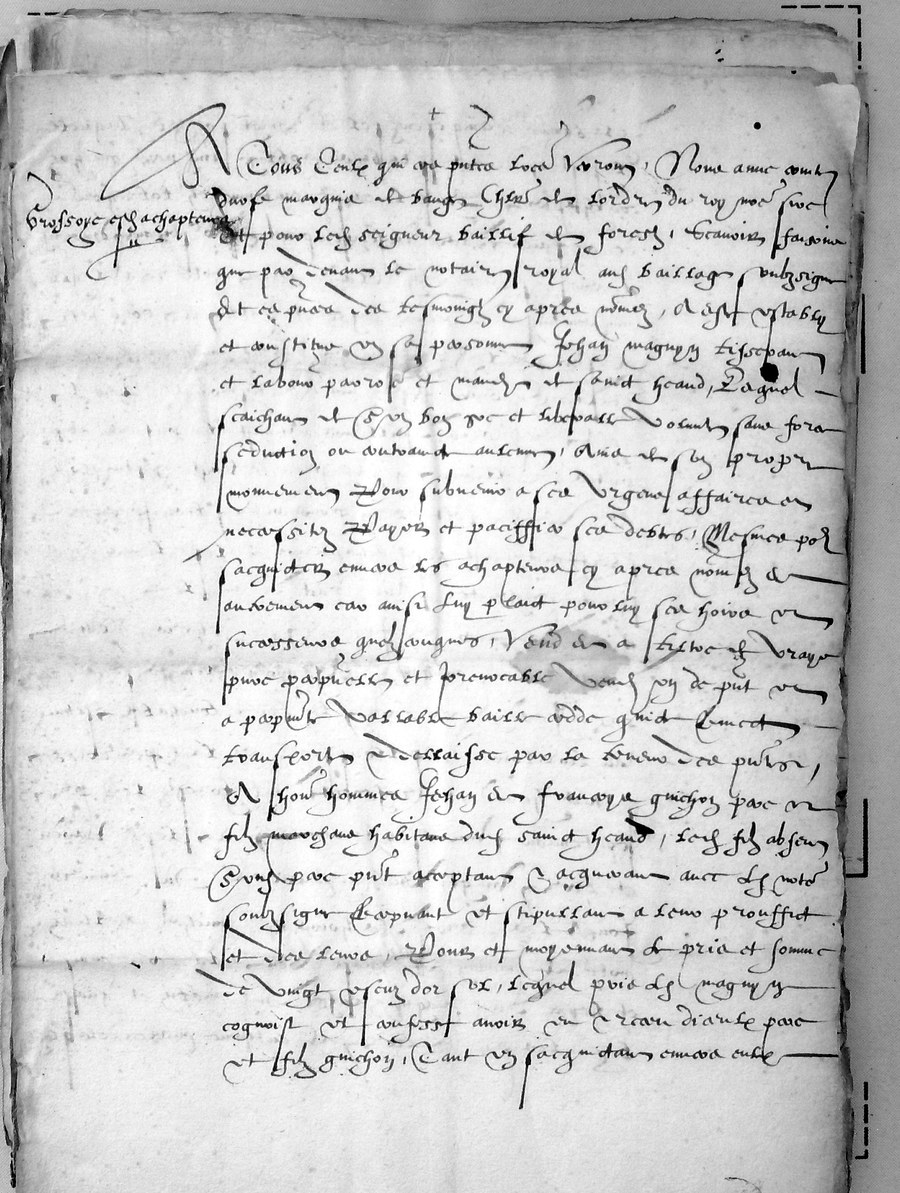 A Tous ceulx qui ces pntes lres verront, Nous anne conte
Durfe marquis de bauge chlr de lordre du roy nre sire
Grossoye es achapteurs
Et pour led seigneur baillif de forestz, Scavoir faisons
que par devant le notaire royal aud bailliage soubzsigne
Et es pnces des tesmoingz cy apres nomes, A este estably
et constitue en sa personne Jehan magnyn tisserant
et labour parroisse et mandemt de sainct heand, Lequel
saichant de son bon gre et liberalle volunte sans force
seduction ou contraincte aulcune, Ains de son propre
mouvement Pour subvenir a ses urgens affaires et
necessitez Payer et paciffier ses debtes, Mesmes pour
sacquicter envers les achapteurs cy apres nomez et
aultrement car ainsi luy plaict pour luy ses hoirs et
successeurs quelzconques, Vend et a tiltre de vraye
pure perpetuelle et Irrevocable vende en de pnt et
a perpetuite vallable baille cedde quicte remect
transporte et dellaisse par la teneur des pntes,
A honn hommes Jehan et Francoys guichon pere et
filz marchans habitans dud sainct heand, led filz absent
sond pere pnt acceptant et acquerant avec led note
soubzsigne recepvant et stipullant a leur prouffict
et des leurs, Pour et moyennant le pris et somme
de vingt escuz dor sol, lequel pris led magnyn
cognoist et confesse avoir eu et receu diceulx pere
et filz guichon, Tant en sacquictant envers eulx